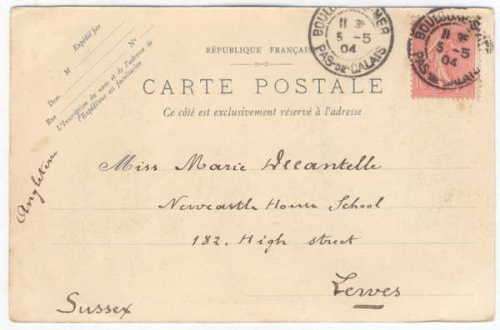 Expédié par
M
N°
Dem
Rue
L'Inscription du nom et de l'adresse de
l'Expéditeur est facultative
RÉPUBLIQUE FRANÇAISE
BOULOGNE-S-MER
5 -5
04
PAS-DE-CALAIS
BOULOGNE-S-MER
5 -5
04
PAS-DE-CALAIS
CARTE POSTALE
Ce côté est exclusivement réservé à l'adresse
Angleterre
Miss Marie
Newcastle House School
182. High street
Lewes
Sussex